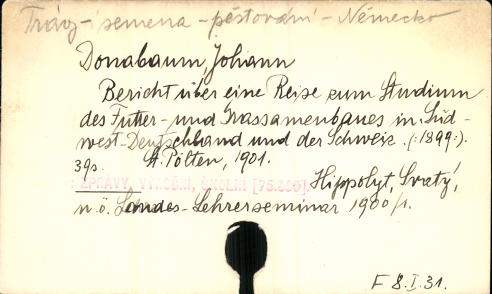 Trávy - semena - pěstování - Německo
Donabaum, Johann
Bericht über eine Reise zum Studium
des Futter- und Grassamenbaues in Süd-
west-Deutschland und der Schweiz. (:1899:).
39s. St. Pölten, 1901.
ZPRÁVY, VÝROČNÍ, ŠKOLNÍ [75.889] Hippolyt, Svatý,
n.ö. Landes-Lehrerseminar 1900/1.
F 8.I.31.